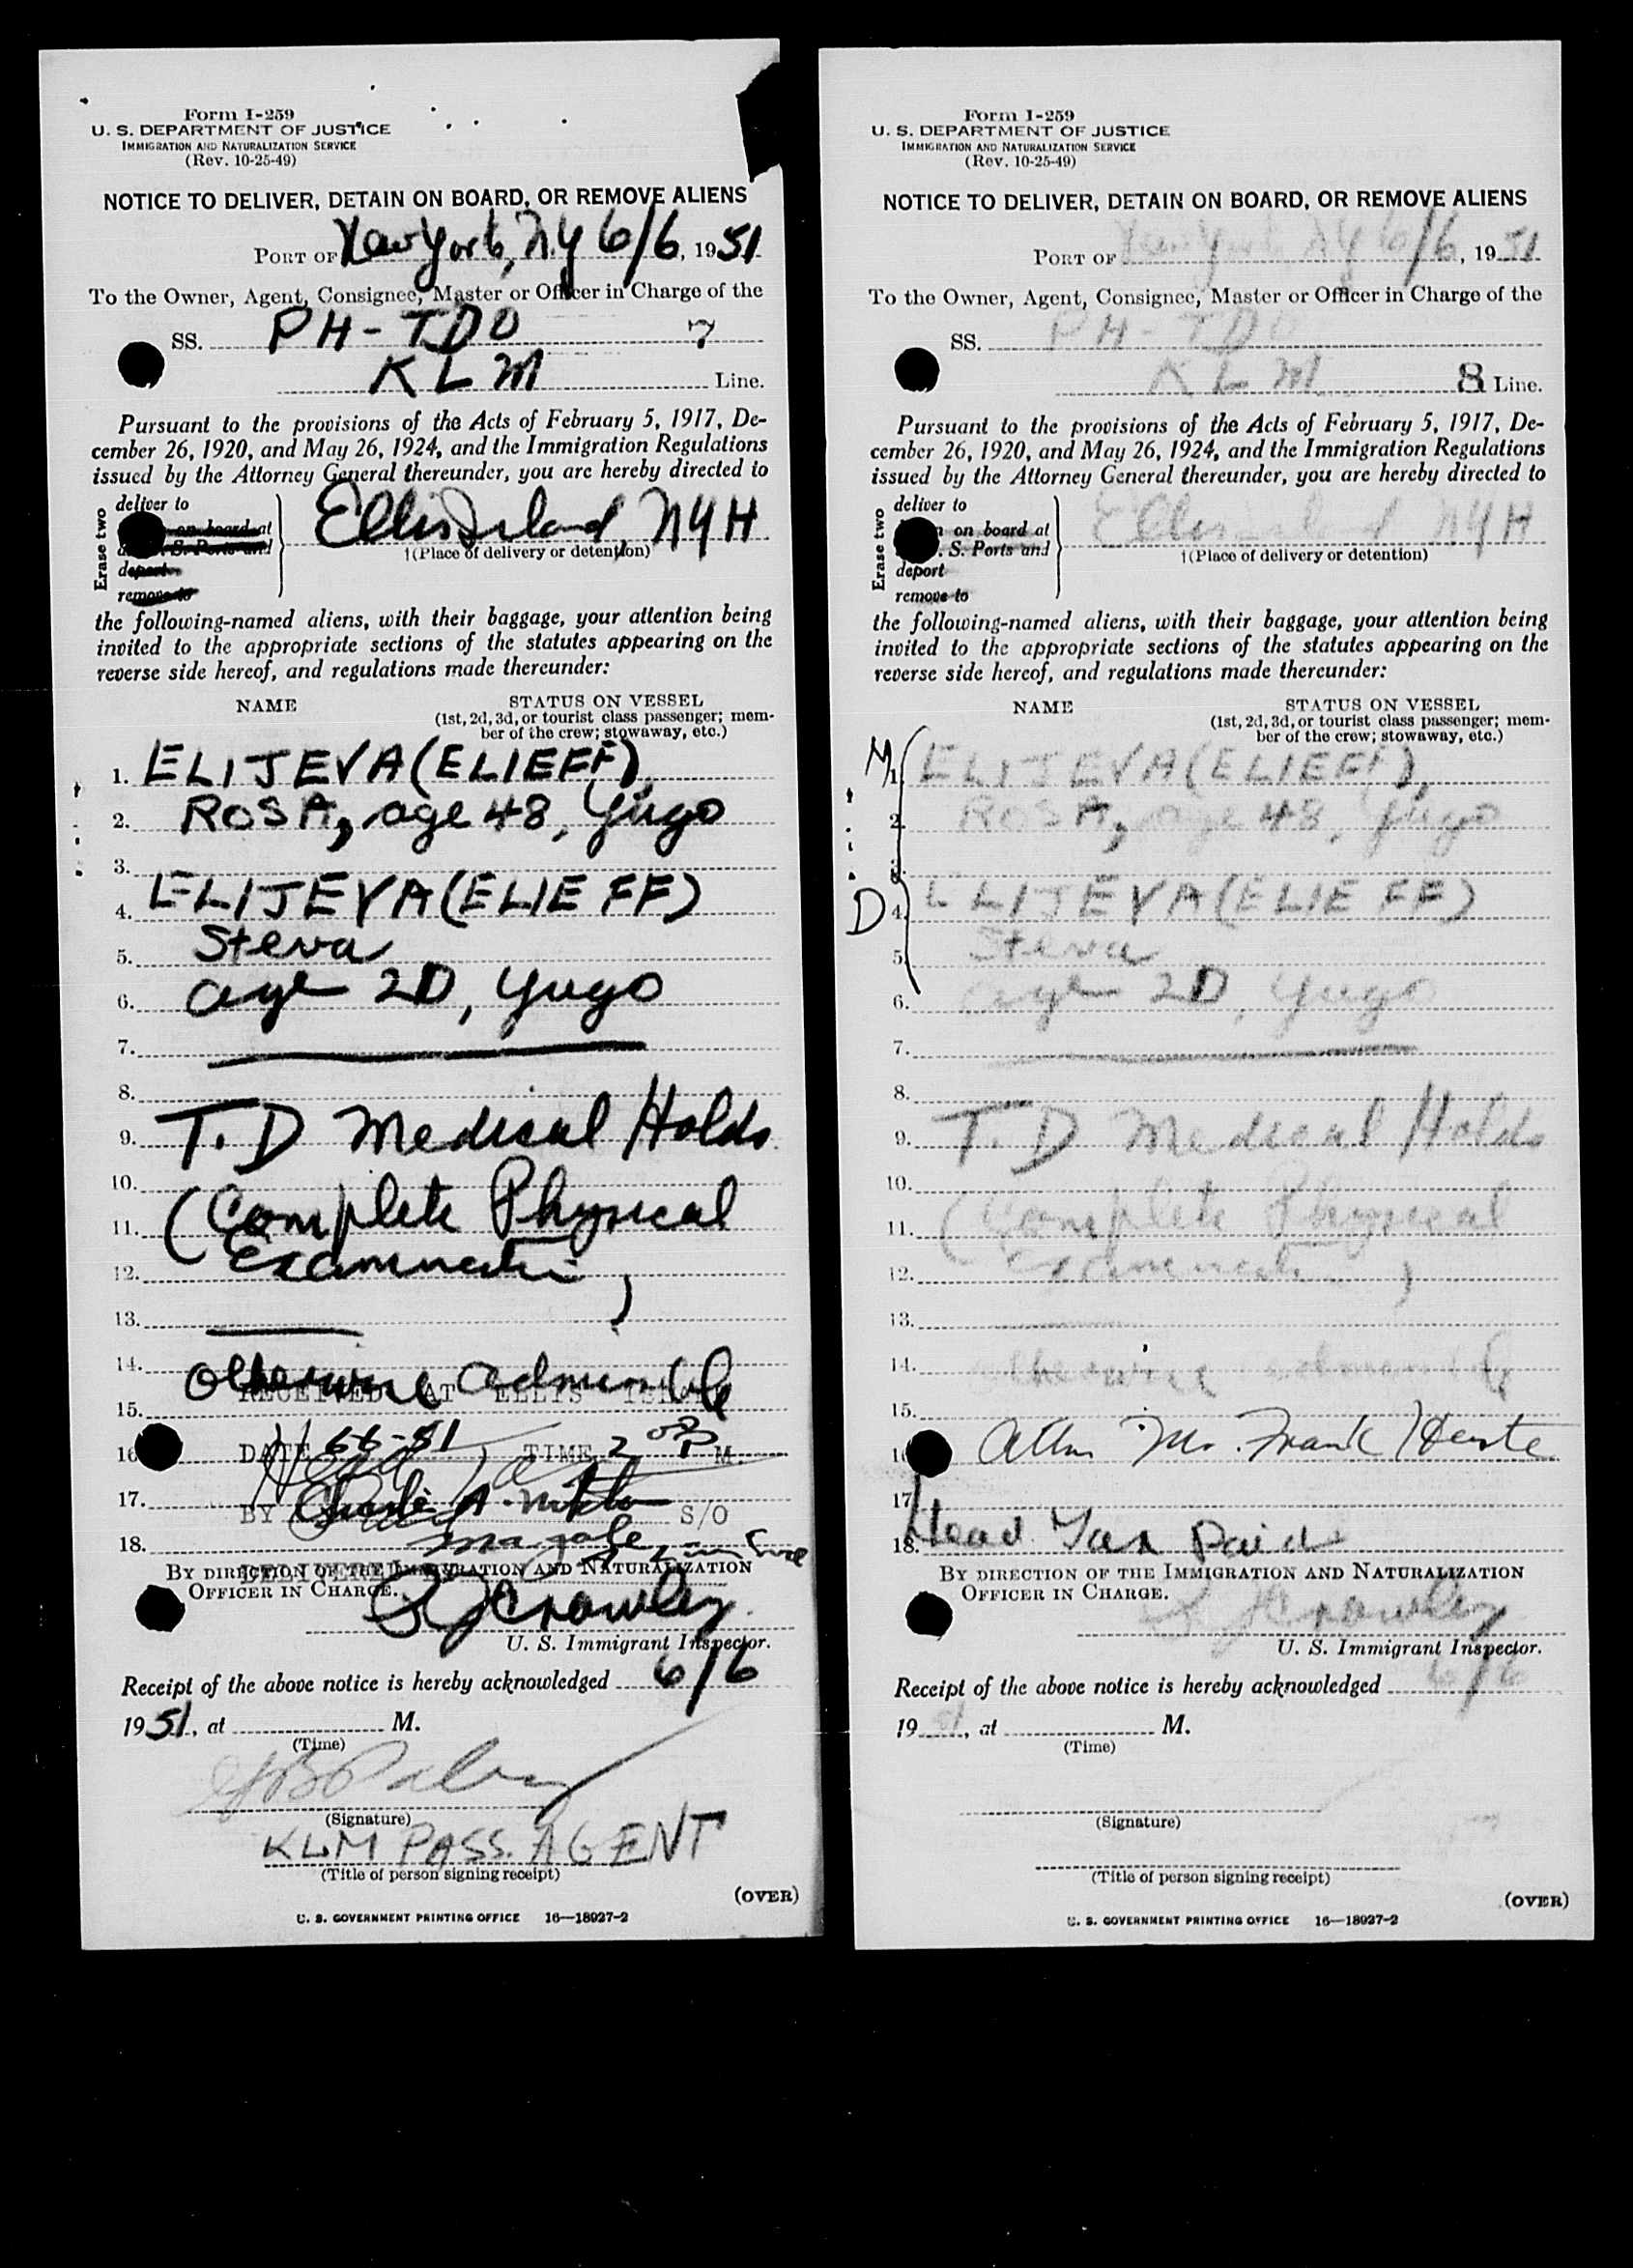 Form I-259
U. S. DEPARTMENT OF JUSTICE
IMMIGRATION AND NATURALIZATION SERVICE
(Rev. 10-25-49)
NOTICE TO DELIVER, DETAIN ON BOARD, OR REMOVE ALIENS
PORT OF New York, N.Y 6/6, 1951
To the Owner, Agent, Consignee, Master or Officer in Charge of the
SS. PH-TDO 7
KLM Line.
Pursuant to the provisions of the Acts of February 5, 1917, De-
cember 26, 1920, and May 26, 1924, and the Immigration Regulations
issued by the Attorney General thereunder, you are hereby directed to
Erase two
deliver to
on board at
S. Ports and
deport
remove to
Ellis Island NYH
†(Place of delivery or detention)
the following-named aliens, with their baggage, your attention being
invited to the appropriate sections of the statutes appearing on the
reverse side hereof, and regulations made thereunder:
NAME STATUS ON VESSEL
(1st, 2d, 3d, or tourist class passenger; mem-
ber of the crew; stowaway, etc.)
1. ELIJEVA (ELIEFF),
2. ROSA, age 48, Yugo
3.
4. ELIJEVA (ELIEFF)
5. Steva
6. age 20, Yugo
7.
8.
9. T.D Medical Holds
10.
11. (Complete Physical
12. Examination)
13.
14. Otherwise admissible
RECEIVED AT ELLIS ISLAND
15.
16. DATE 6-6-51 TIME 2 00 P M.
17. BY Charles A. S/O
18.
BY DIRECTION OF THE IMMIGRATION AND NATURALIZATION
OFFICER IN CHARGE.
Crowley
U. S. Immigrant Inspector.
Receipt of the above notice is hereby acknowledged 6/6
1951, at M.
(Time)
(Signature)
KLM PASS. AGENT
(Title of person signing receipt)
(OVER)
U. S. GOVERNMENT PRINTING OFFICE 16—18927-2
Form I-259
U. S. DEPARTMENT OF JUSTICE
IMMIGRATION AND NATURALIZATION SERVICE
(Rev. 10-25-49)
NOTICE TO DELIVER, DETAIN ON BOARD, OR REMOVE ALIENS
PORT OF New York NY 6/6, 1951
To the Owner, Agent, Consignee, Master or Officer in Charge of the
SS. PH-TDO
KLM 8 Line.
Pursuant to the provisions of the Acts of February 5, 1917, De-
cember 26, 1920, and May 26, 1924, and the Immigration Regulations
issued by the Attorney General thereunder, you are hereby directed to
Erase two
deliver to
on board at
. S. Ports and
deport
remove to
Ellis Island NYH
†(Place of delivery or detention)
the following-named aliens, with their baggage, your attention being
invited to the appropriate sections of the statutes appearing on the
reverse side hereof, and regulations made thereunder:
NAME STATUS ON VESSEL
(1st, 2d, 3d, or tourist class passenger; mem-
ber of the crew; stowaway, etc.)
M 1. ELIJEVA (ELIEFF),
2. ROSA, age 48, Yugo
3.
D 4. ELIJEVA (ELIEFF)
5. Steva
6. age 20, Yugo
7.
8.
9. T.D Medical Holds
10.
11. (Complete Physical
12. Examination)
13.
14. Otherwise admissible
15.
16. Attn Mr. Frank
17.
18. Head Tax Paid
BY DIRECTION OF THE IMMIGRATION AND NATURALIZATION
OFFICER IN CHARGE.
Crowley
U. S. Immigrant Inspector.
Receipt of the above notice is hereby acknowledged 6/6
1951, at M.
(Time)
(Signature)
(Title of person signing receipt)
(OVER)
U. S. GOVERNMENT PRINTING OFFICE 16—18927-2